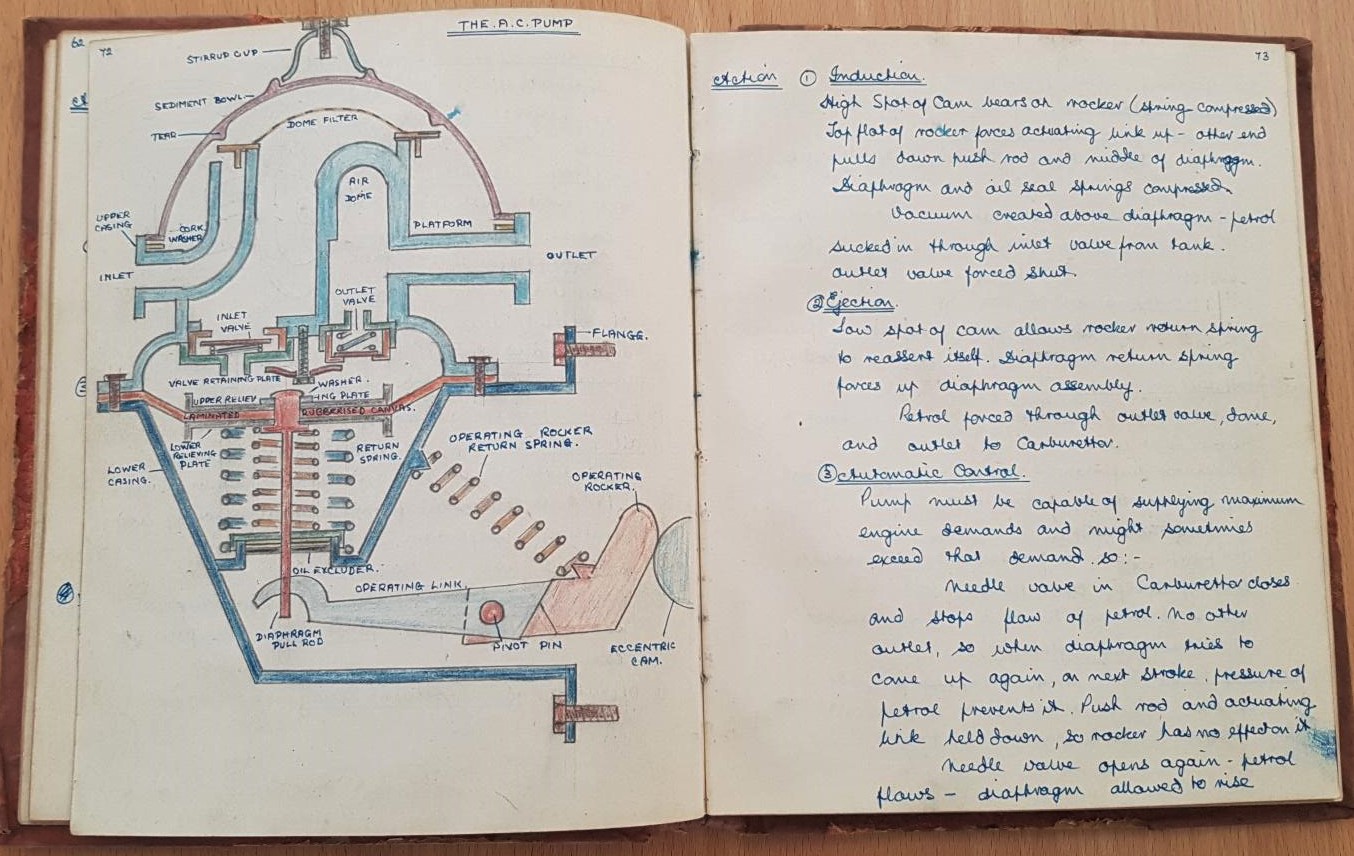 62
72
THE.A.C.PUMP
STIRRUP CUP
SEDIMENT BOWL.
TEAR
DOME FILTER
AIR
DOME
UPPER
CASING
CORK
WASHER
PLATFORM
INLET
OUTLET
OUTLET
VALVE
INLET
VALVE
FLANGE.
VALVE RETAINING PLATE
WASHER.
UPPER RELIEV
ING PLATE
LAMINATED
RUBBERISED CANVAS.
LOWER
RELIEVING
PLATE
RETURN
SPRING.
OPERATING ROCKER
RETURN SPRING.
LOWER
CASING.
OPERATING
ROCKER.
OIL EXCLUDER.
OPERATING LINK.
DIAPHRAGM
PULL ROD
PIVOT PIN
ECCENTRIC
CAM.
73
Action ① Induction.
High Spot of Cam bears on rocker (spring compressed)
Top flat of rocker forces actuating link up - other end
pulls down push rod and middle of diaphragm.
Diaphragm and oil seal springs compressed.
Vacuum created above diaphragm - petrol
sucked in through inlet valve from tank.
Outlet valve forced shut.
② Ejection.
Low spot of cam allows rocker return spring
to reassert itself. Diaphragm return spring
forces up diaphragm assembly.
Petrol forced through outlet valve, dome,
and outlet to Carburettor.
③ Automatic Control.
Pump must be capable of supplying maximum
engine demands and might sometimes
exceed that demand so:-
Needle valve in Carburettor closes
and stops flow of petrol. No other
outlet, so when diaphragm tries to
come up again, on next stroke, pressure of
petrol prevents it. Push rod and actuating
link held down, so rocker has no effect on it
Needle valve opens again - petrol
flows - diaphragm allowed to rise